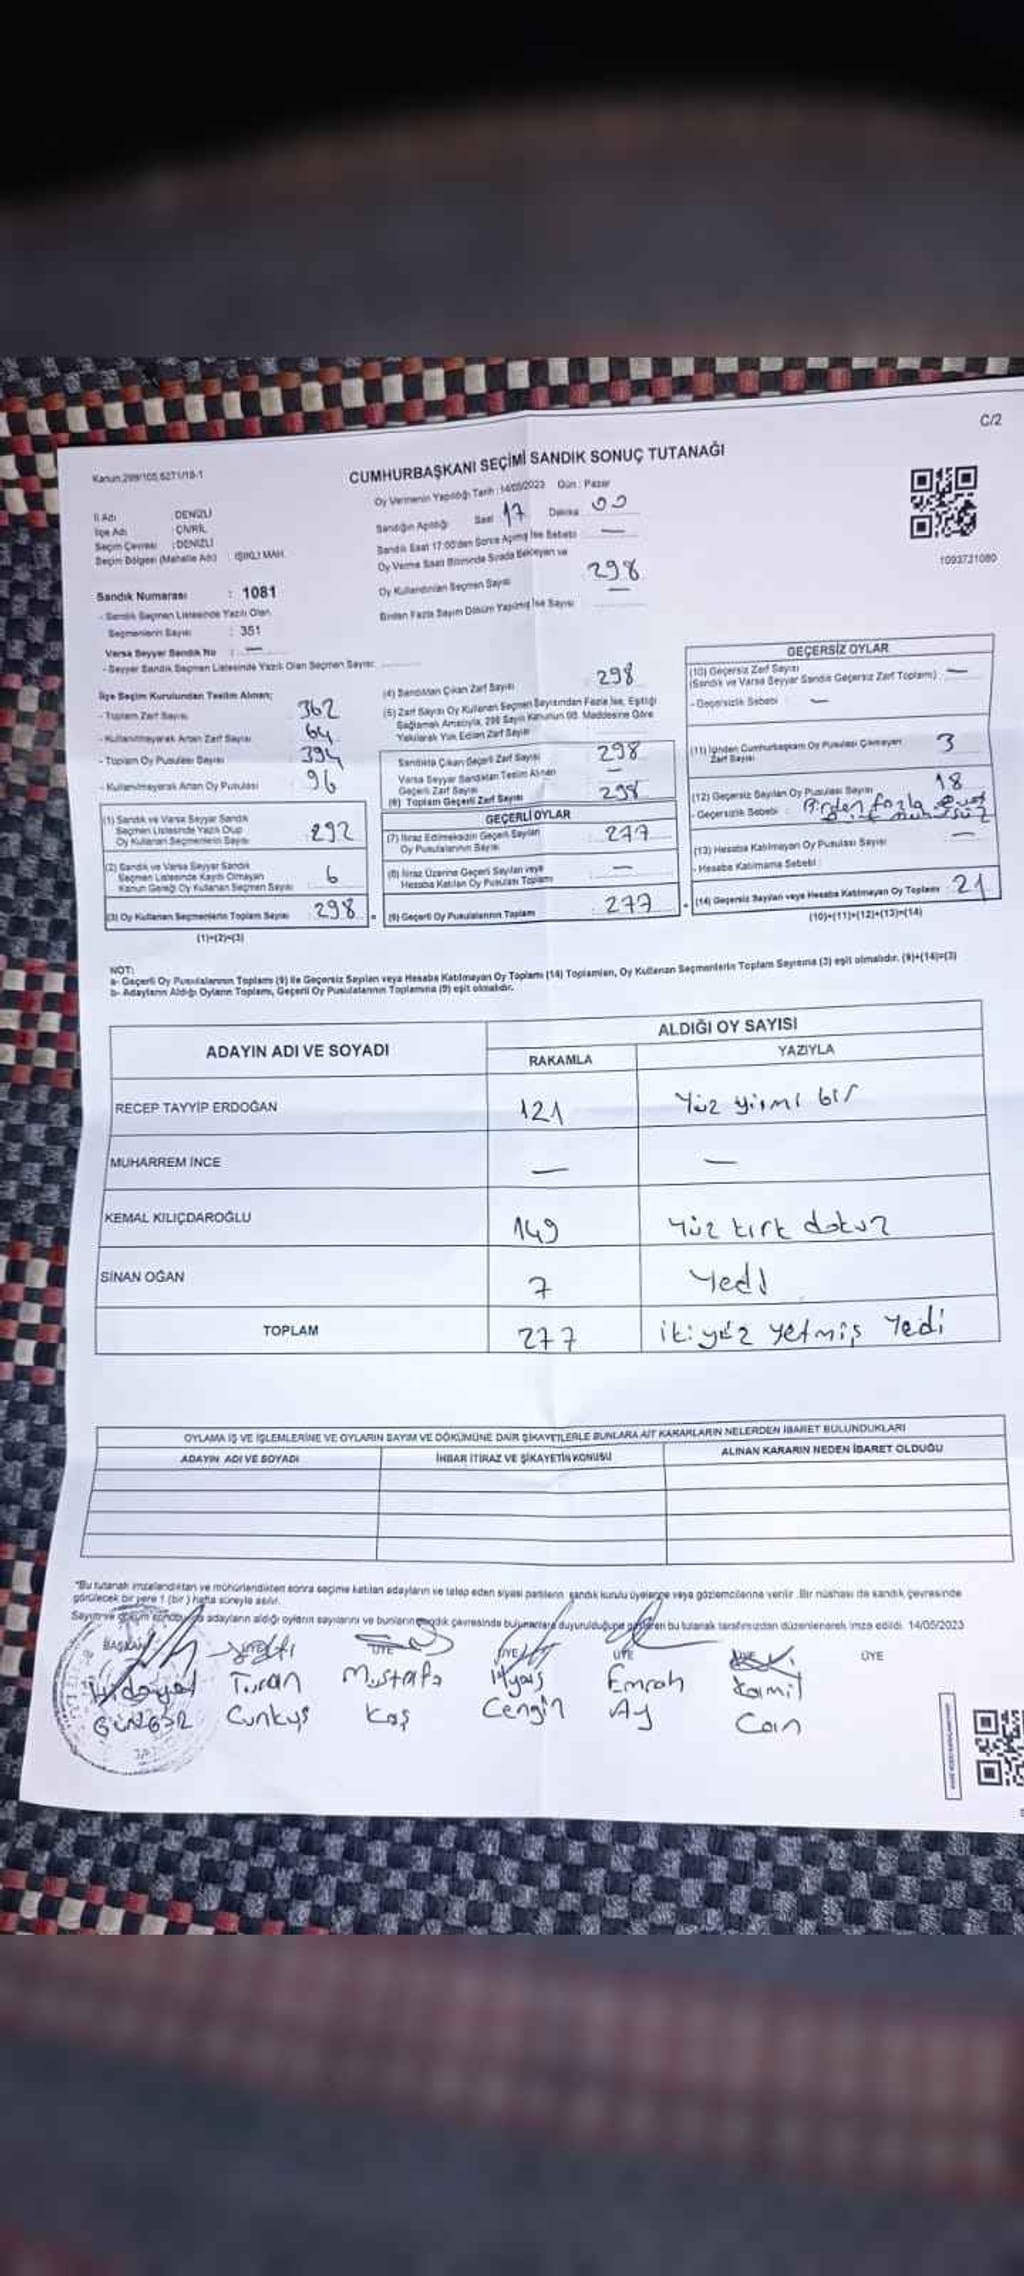 C/2
Kanun:298/105,6271/18-1
CUMHURBAŞKANI SEÇİMİ SANDIK SONUÇ TUTANAĞI
Oy Vermenin Yapıldığı Tarih : 14/05/2023 Gün : Pazar
İl Adı : DENİZLİ
İlçe Adı : ÇİVRİL
Seçim Çevresi : DENİZLİ
Seçim Bölgesi (Mahalle Adı) : IŞIKLI MAH.
Sandığın Açıldığı Saat 17 Dakika 00
Sandık Saat 17:00'den Sonra Açılmış İse Sebebi —
Oy Verme Saati Bitiminde Sırada Bekleyen ve
Oy Kullandırılan Seçmen Sayısı 298
Birden Fazla Sayım Döküm Yapılmış İse Sayısı —
1093731080
Sandık Numarası : 1081
- Sandık Seçmen Listesinde Yazılı Olan
Seçmenlerin Sayısı : 351
Varsa Seyyar Sandık No : —
- Seyyar Sandık Seçmen Listesinde Yazılı Olan Seçmen Sayısı:
İlçe Seçim Kurulundan Teslim Alınan;
- Toplam Zarf Sayısı 362
- Kullanılmayarak Artan Zarf Sayısı 64
- Toplam Oy Pusulası Sayısı 394
- Kullanılmayarak Artan Oy Pusulası 96
(1) Sandık ve Varsa Seyyar Sandık
Seçmen Listesinde Yazılı Olup
Oy Kullanan Seçmenlerin Sayısı 292
(2) Sandık ve Varsa Seyyar Sandık
Seçmen Listesinde Kayıtlı Olmayan
Kanun Gereği Oy Kullanan Seçmen Sayısı 6
(3) Oy Kullanan Seçmenlerin Toplam Sayısı 298
(1)+(2)=(3)
(4) Sandıktan Çıkan Zarf Sayısı 298
(5) Zarf Sayısı Oy Kullanan Seçmen Sayısından Fazla İse, Eşitliği
Sağlamak Amacıyla, 298 Sayılı Kanunun 98. Maddesine Göre
Yakılarak Yok Edilen Zarf Sayısı
Sandıkta Çıkan Geçerli Zarf Sayısı 298
Varsa Seyyar Sandıktan Teslim Alınan
Geçerli Zarf Sayısı —
(6) Toplam Geçerli Zarf Sayısı 298
GEÇERLİ OYLAR
(7) İtiraz Edilmeksizin Geçerli Sayılan
Oy Pusulalarının Sayısı 277
(8) İtiraz Üzerine Geçerli Sayılan veya
Hesaba Katılan Oy Pusulası Toplamı —
(9) Geçerli Oy Pusulalarının Toplamı 277
GEÇERSİZ OYLAR
(10) Geçersiz Zarf Sayısı
(Sandık ve Varsa Seyyar Sandık Geçersiz Zarf Toplamı) —
- Geçersizlik Sebebi : —
(11) İçinden Cumhurbaşkanı Oy Pusulası Çıkmayan
Zarf Sayısı 3
(12) Geçersiz Sayılan Oy Pusulası Sayısı 18
- Geçersizlik Sebebi : Birden fazla evet
(13) Hesaba Katılmayan Oy Pusulası Sayısı —
- Hesaba Katılmama Sebebi :
(14) Geçersiz Sayılan veya Hesaba Katılmayan Oy Toplamı 21
(10)+(11)+(12)+(13)=(14)
NOT:
a- Geçerli Oy Pusulalarının Toplamı (9) ile Geçersiz Sayılan veya Hesaba Katılmayan Oy Toplamı (14) Toplamları, Oy Kullanan Seçmenlerin Toplam Sayısına (3) eşit olmalıdır. (9)+(14)=(3)
b- Adayların Aldığı Oyların Toplamı, Geçerli Oy Pusulalarının Toplamına (9) eşit olmalıdır.
ADAYIN ADI VE SOYADI
ALDIĞI OY SAYISI
RAKAMLA YAZIYLA
RECEP TAYYİP ERDOĞAN 121 Yüz yirmi bir
MUHARREM İNCE — —
KEMAL KILIÇDAROĞLU 149 Yüz kırk dokuz
SİNAN OĞAN 7 Yedi
TOPLAM 277 iki yüz yetmiş Yedi
OYLAMA İŞ VE İŞLEMLERİNE VE OYLARIN SAYIM VE DÖKÜMÜNE DAİR ŞİKAYETLERLE BUNLARA AİT KARARLARIN NELERDEN İBARET BULUNDUKLARI
ADAYIN ADI VE SOYADI İHBAR İTİRAZ VE ŞİKAYETİN KONUSU ALINAN KARARIN NEDEN İBARET OLDUĞU
"Bu tutanak imzalandıktan ve mühürlendikten sonra seçime katılan adayların ve talep eden siyasi partilerin sandık kurulu üyelerine veya gözlemcilerine verilir. Bir nüshası da sandık çevresinde
görülecek bir yere 1 (bir) hafta süreyle asılır.
Sayım ve döküm sonucunda adayların aldığı oyların sayılarını ve bunların sandık çevresinde bulunanlara duyurulduğunu gösteren bu tutanak tarafımızdan düzenlenerek imza edildi. 14/05/2023
BAŞKAN ÜYE ÜYE ÜYE ÜYE ÜYE
Hidayet Turan Mustafa İlyas Emrah Kamil
GÜNGÖR Cunkuş Koş Cengiz Ay Can